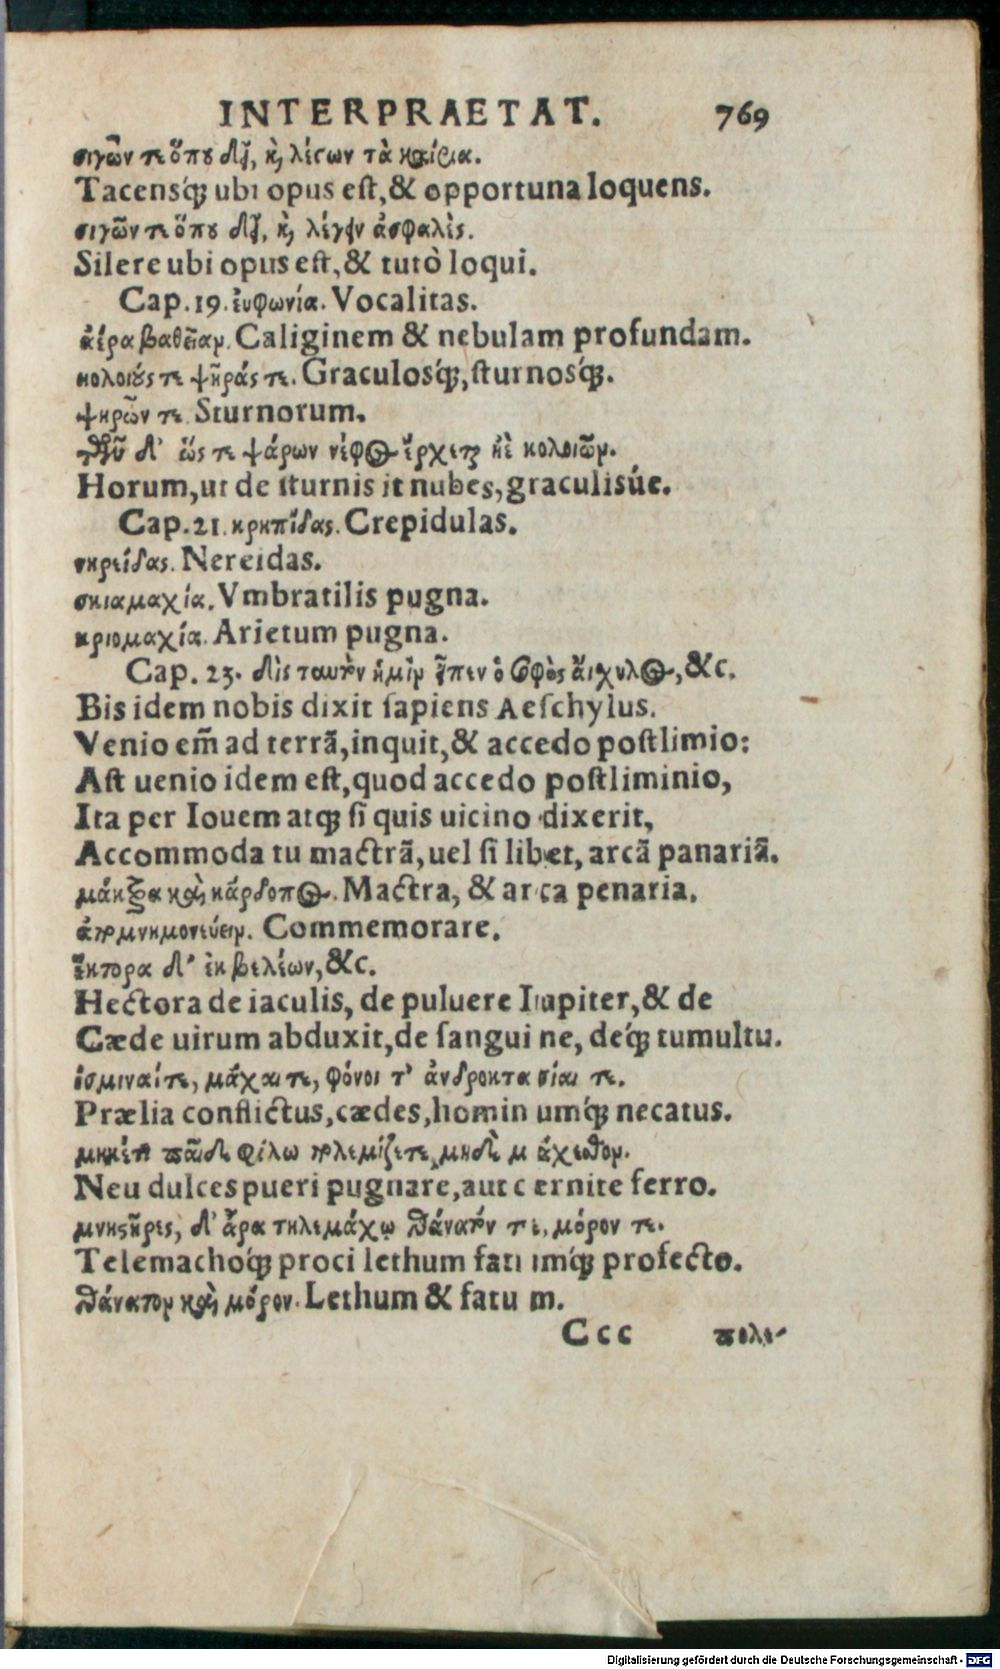 INTERPRAETAT. 769
σιγῶν τε ὅπου δεῖ, κὶ λέγων τὰ καίρια.
Tacensq́ꝫ ubi opus est, & opportuna loquens.
σιγῶν τε ὅπου δεῖ, κὶ λέγειν ἀσφαλὲς.
Silere ubi opus est, & tutò loqui.
Cap. 19. ἐυφωνία. Vocalitas.
ἀέρα βαθεῖαν. Caliginem & nebulam profundam.
κολοιούς τε ψηράς τε. Graculosq́ꝫ, sturnosq́ꝫ.
ψηρῶν τε. Sturnorum.
τῶν δ' ὥς τε ψάρων νέφος ἔρχεται ἠὲ κολοιῶν.
Horum, ut de sturnis it nubes, graculisúe.
Cap. 21. κρηπίδας. Crepidulas.
νηρεΐδας. Nereidas.
σκιαμαχία. Vmbratilis pugna.
κριομαχία. Arietum pugna.
Cap. 23. δὶς ταυτὸν ἡμῖν εἶπεν ὁ σοφὸς ἄισχυλος, &c.
Bis idem nobis dixit sapiens Aeschylus.
Venio em̃ ad terrã, inquit, & accedo postlimio:
Ast uenio idem est, quod accedo postliminio,
Ita per Iouem atqꝫ si quis uicino dixerit,
Accommoda tu mactrã, uel si libet, arcã panariã.
μάκτρα καὶ κάρδοπος. Mactra, & arca penaria.
ἀπομνημονεύειν. Commemorare.
ἕκτορα δ' ἐκ βελέων, &c.
Hectora de iaculis, de puluere Iupiter, & de
Cæde uirum abduxit, de sanguine, deq́ꝫ tumultu.
ὑσμιναίτε, μάχαι τε, φόνοι τ' ἀνδροκτασίαι τε.
Prælia conflictus, cædes, hominumq́ꝫ necatus.
μηκέτι παῖδε φίλω πολεμίζετε, μηδὲ μάχεσθον.
Neu dulces pueri pugnare, aut cernite ferro.
μνηστῆρες, δ' ἄρα τηλεμάχῳ θάνατόν τε, μόρον τε.
Telemachoq́ꝫ proci lethum fatumq́ꝫ profecto.
θάνατον καὶ μόρον. Lethum & fatum.
Ccc πολε-
Digitalisierung gefördert durch die Deutsche Forschungsgemeinschaft - DFG